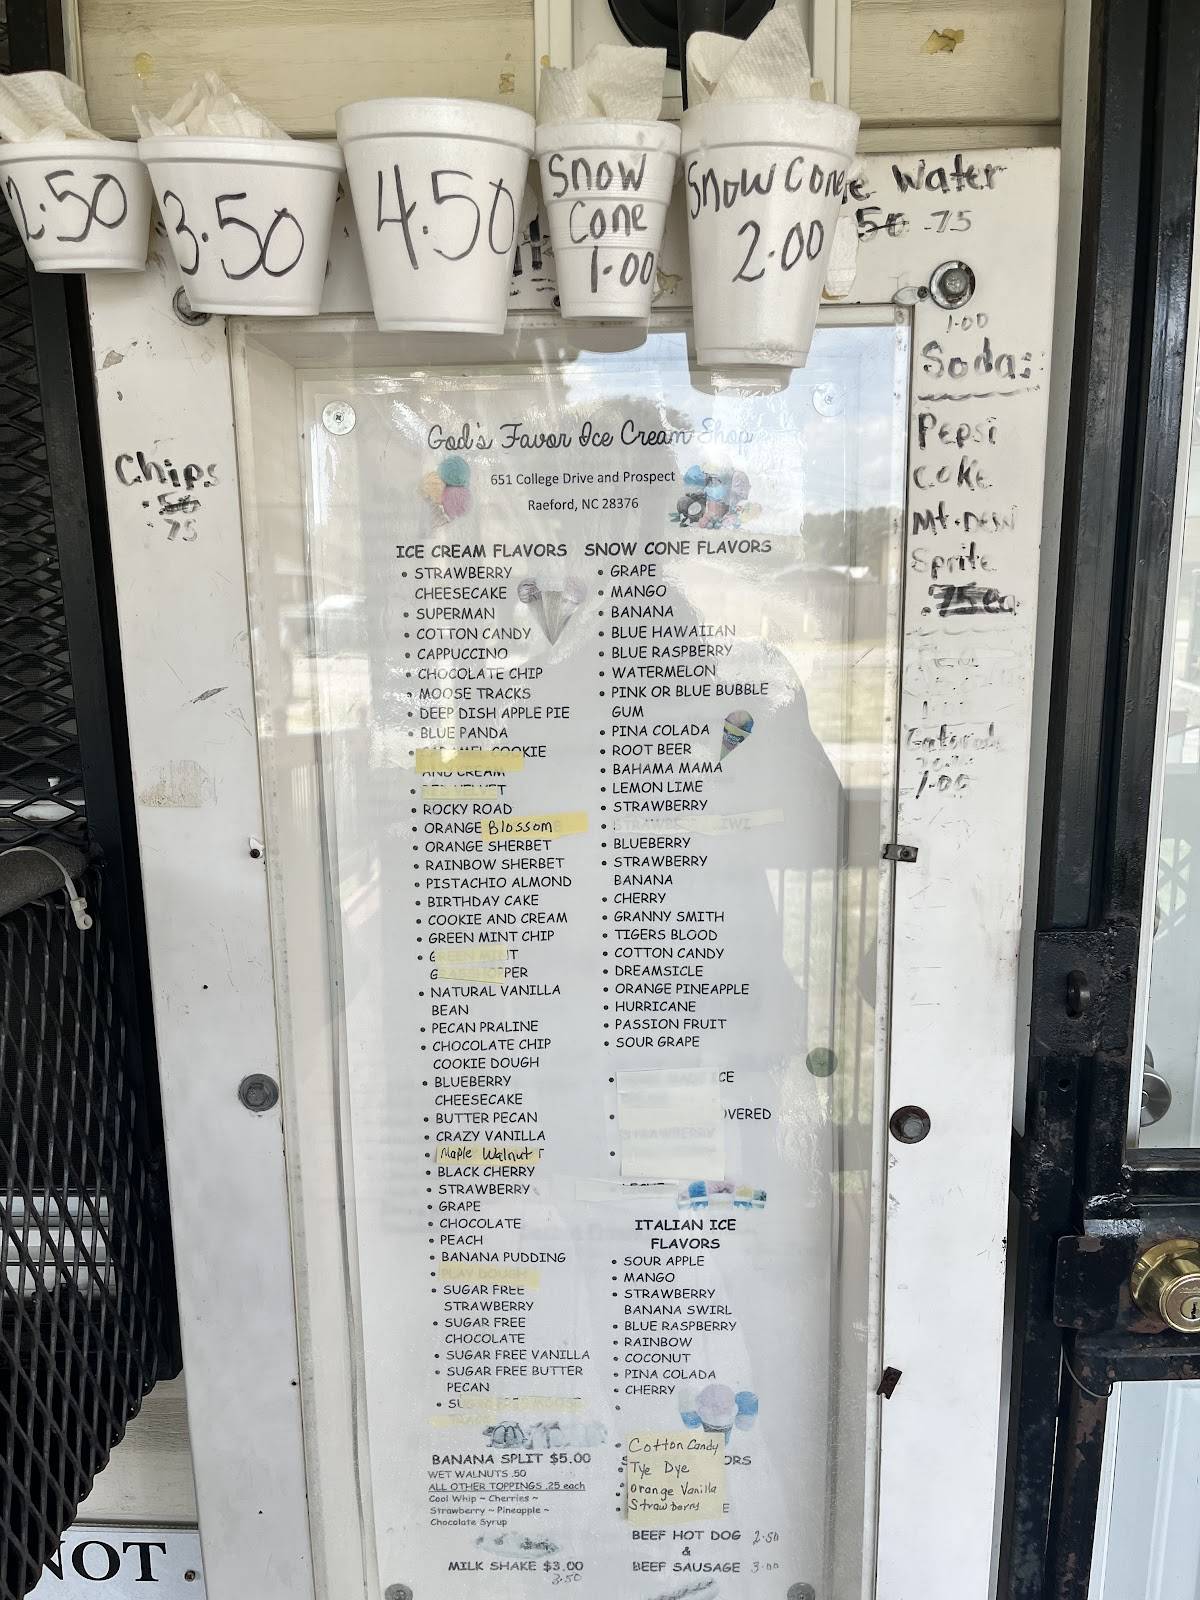 2.50
3.50
4.50
Snow
Cone
1.00
Snow Cone
2.00
Water
50 .75
1.00
Sodas
Pepsi
Coke
Mt. Dew
Sprite
.75 ea
Gatorade
1.00
Chips
.50
75
God's Favor Ice Cream Shop
651 College Drive and Prospect
Raeford, NC 28376
ICE CREAM FLAVORS
• STRAWBERRY
CHEESECAKE
• SUPERMAN
• COTTON CANDY
• CAPPUCCINO
• CHOCOLATE CHIP
• MOOSE TRACKS
• DEEP DISH APPLE PIE
• BLUE PANDA
• CARAMEL COOKIE
AND CREAM
• RED VELVET
• ROCKY ROAD
• ORANGE Blossom
• ORANGE SHERBET
• RAINBOW SHERBET
• PISTACHIO ALMOND
• BIRTHDAY CAKE
• COOKIE AND CREAM
• GREEN MINT CHIP
• GREEN MINT
GRASSHOPPER
• NATURAL VANILLA
BEAN
• PECAN PRALINE
• CHOCOLATE CHIP
COOKIE DOUGH
• BLUEBERRY
CHEESECAKE
• BUTTER PECAN
• CRAZY VANILLA
• Maple Walnut
• BLACK CHERRY
• STRAWBERRY
• GRAPE
• CHOCOLATE
• PEACH
• BANANA PUDDING
• PLAY DOUGH
• SUGAR FREE
STRAWBERRY
• SUGAR FREE
CHOCOLATE
• SUGAR FREE VANILLA
• SUGAR FREE BUTTER
PECAN
• SUGAR FREE MOOSE
BANANA SPLIT $5.00
WET WALNUTS .50
ALL OTHER TOPPINGS .25 each
Cool Whip ~ Cherries ~
Strawberry ~ Pineapple ~
Chocolate Syrup
MILK SHAKE $3.00
3.50
SNOW CONE FLAVORS
• GRAPE
• MANGO
• BANANA
• BLUE HAWAIIAN
• BLUE RASPBERRY
• WATERMELON
• PINK OR BLUE BUBBLE
GUM
• PINA COLADA
• ROOT BEER
• BAHAMA MAMA
• LEMON LIME
• STRAWBERRY
• STRAWBERRY KIWI
• BLUEBERRY
• STRAWBERRY
BANANA
• CHERRY
• GRANNY SMITH
• TIGERS BLOOD
• COTTON CANDY
• DREAMSICLE
• ORANGE PINEAPPLE
• HURRICANE
• PASSION FRUIT
• SOUR GRAPE
ICE
OVERED
STRAWBERRY
ITALIAN ICE
FLAVORS
• SOUR APPLE
• MANGO
• STRAWBERRY
BANANA SWIRL
• BLUE RASPBERRY
• RAINBOW
• COCONUT
• PINA COLADA
• CHERRY
• Cotton Candy
Tye Dye
ORS
Orange Vanilla
Strawberry
E
BEEF HOT DOG 2.50
&
BEEF SAUSAGE 3.00
NOT